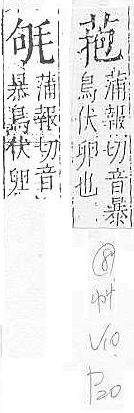 菢
蒲報切音暴
鳥伏卵也
蒲報切音
暴鳥伏卵
⑧ 艸 V10 P20